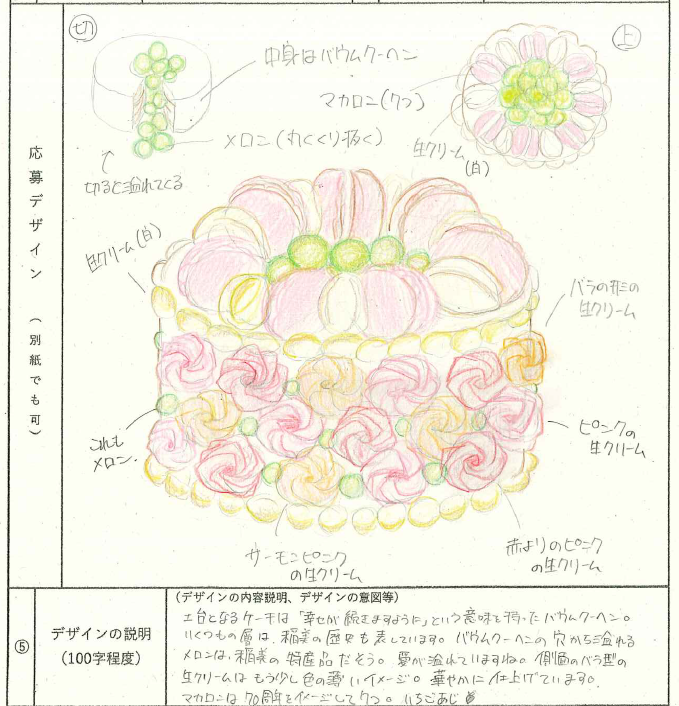 切
中身はバウムクーヘン
上
マカロン(7つ)
メロン(丸くくり抜く)
生クリーム
(白)
切ると溢れてくる
生クリーム(白)
バラの形の
生クリーム
これも
メロン.
ピンクの
生クリーム
サーモンピンク
の生クリーム
赤よりのピンク
の生クリーム
応募デザイン (別紙でも可)
⑤
デザインの説明
(100字程度)
(デザインの内容説明、デザインの意図等)
土台となるケーキは「幸せが続きますように」という意味を持ったバウムクーヘン。
いくつもの層は、稲美の歴史も表しています。バウムクーヘンの穴から溢れる
メロンは、稲美の特産品だそう。夢が溢れていますね。側面のバラ型の
生クリームはもう少し色の薄いイメージ。華やかに仕上げています。
マカロンは70周年をイメージして7つ。いちごあじ